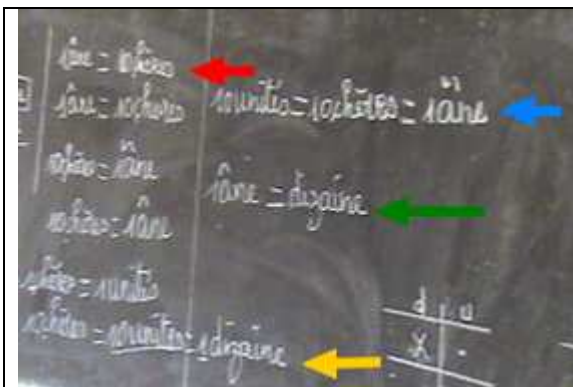 1âne = 10chères
1âne = 10chères
10chères = 1âne
10chères = 1âne
= 1unités
10chères = 10unités = 1dizaine
10unités = 10chères = 1âne
1âne = dizaine
d u
X -